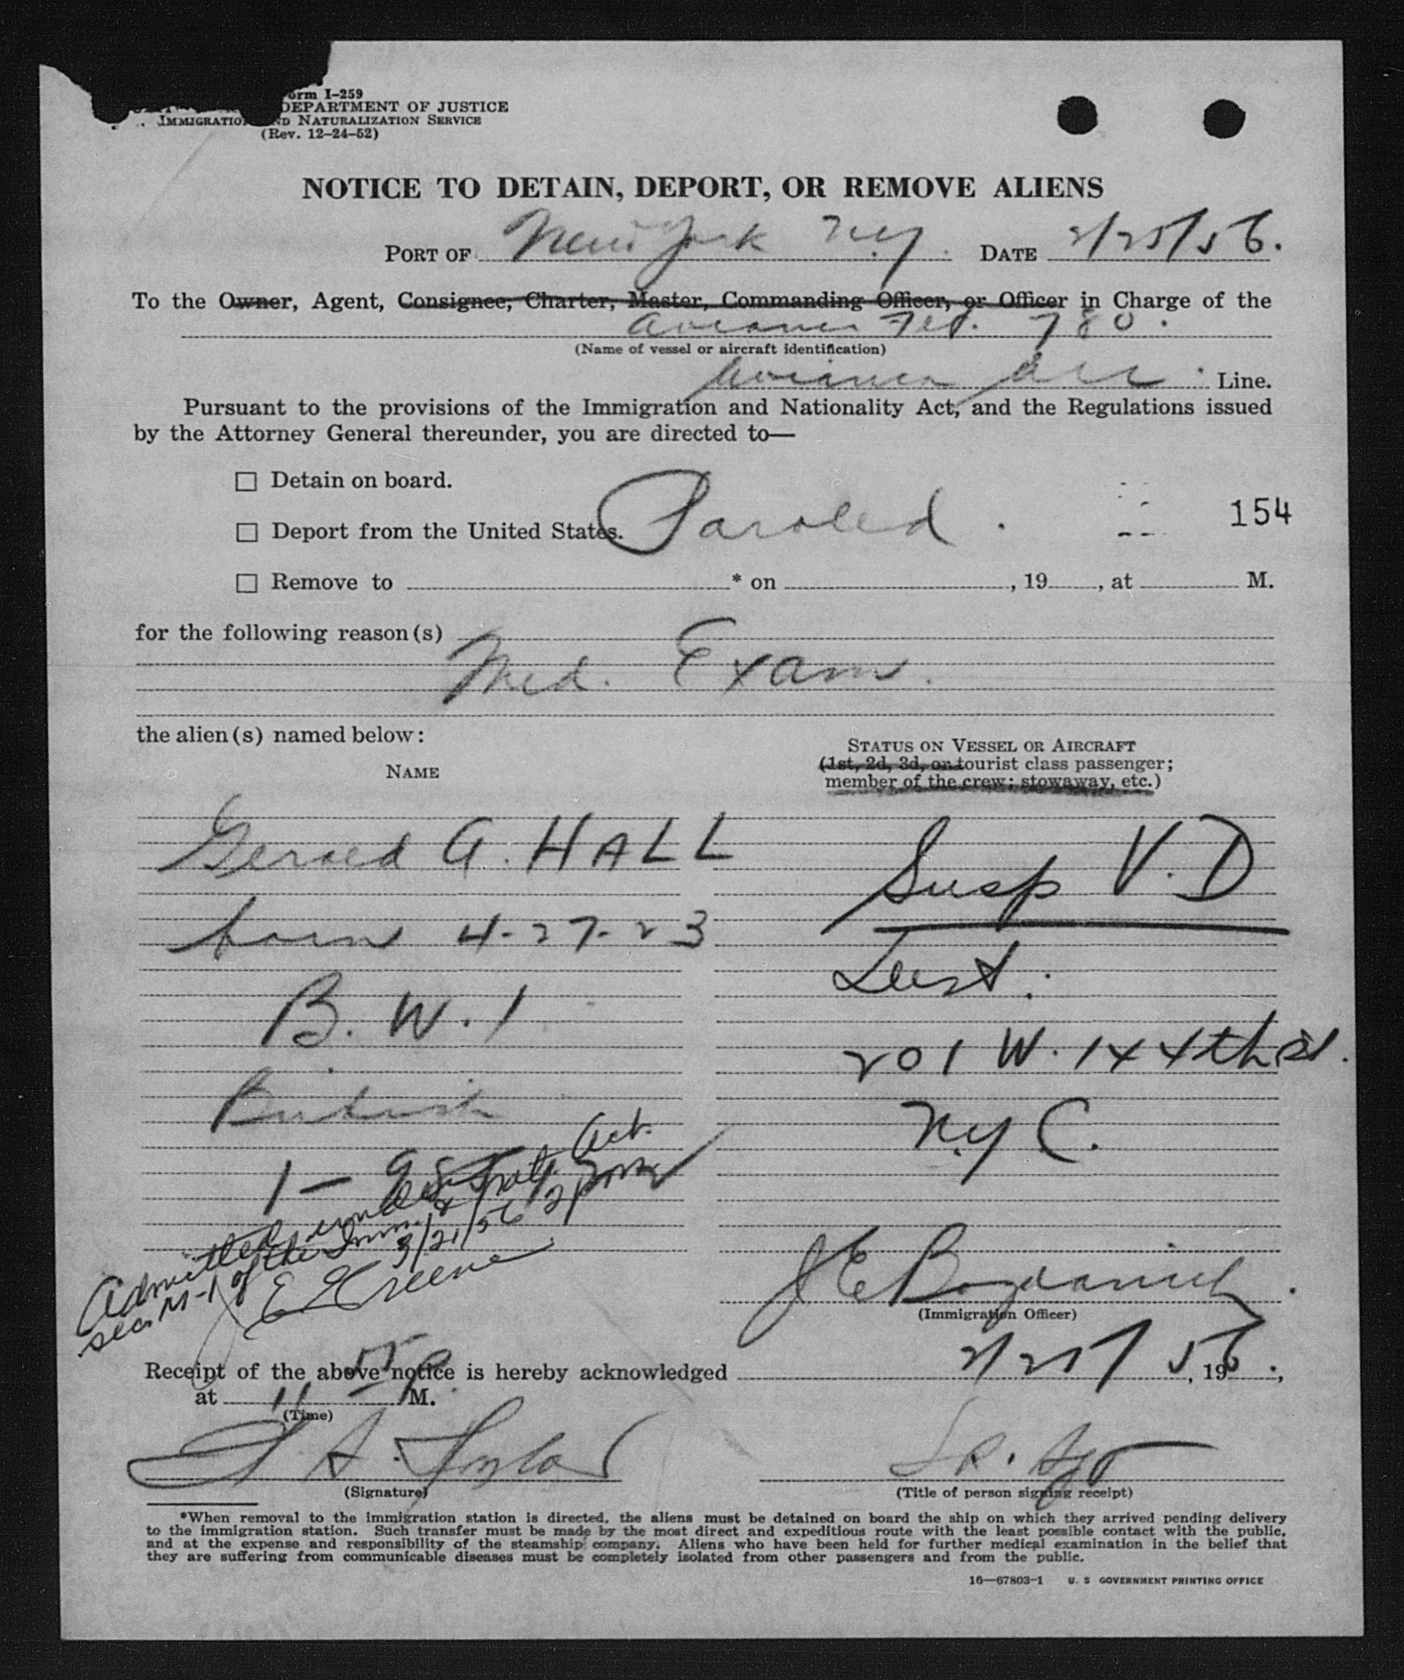 Form I-259
DEPARTMENT OF JUSTICE
IMMIGRATION AND NATURALIZATION SERVICE
(Rev. 12-24-52)
NOTICE TO DETAIN, DEPORT, OR REMOVE ALIENS
PORT OF New York N.Y. DATE 2/25/56.
To the Owner, Agent, Consignee, Charter, Master, Commanding Officer, or Officer in Charge of the
Avianca 780.
(Name of vessel or aircraft identification)
Avianca Line.
Pursuant to the provisions of the Immigration and Nationality Act, and the Regulations issued
by the Attorney General thereunder, you are directed to—
☐ Detain on board.
Paroled.
154
☐ Deport from the United States.
☐ Remove to * on , 19 , at M.
for the following reason(s)
Med. Exam.
the alien(s) named below:
NAME
STATUS ON VESSEL OR AIRCRAFT
(1st, 2d, 3d, or tourist class passenger;
member of the crew; stowaway, etc.)
Gerald A. HALL
Susp V.D
born 4-27-23
B.W.I
201 W. 144th St.
British
N.Y C.
Admitted under Sec.
of the Imm. & Nat. Act.
3/21/56
E Greene
J E
(Immigration Officer)
Receipt of the above notice is hereby acknowledged 2/25/56, 19 ,
at 11 M.
(Time)
A. Taylor
(Signature)
(Title of person signing receipt)
*When removal to the immigration station is directed, the aliens must be detained on board the ship on which they arrived pending delivery
to the immigration station. Such transfer must be made by the most direct and expeditious route with the least possible contact with the public,
and at the expense and responsibility of the steamship company. Aliens who have been held for further medical examination in the belief that
they are suffering from communicable diseases must be completely isolated from other passengers and from the public.
16—67803-1 U. S GOVERNMENT PRINTING OFFICE